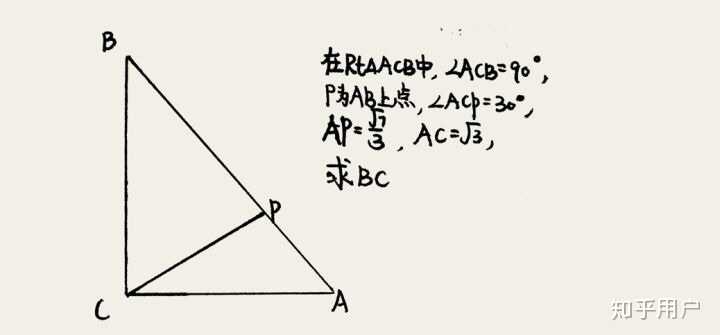 B
在Rt△ACB中,∠ACB=90°,
P为AB上点,∠ACP=30°,
AP=√7/3,AC=√3,
求BC
P
C
A
知乎用户